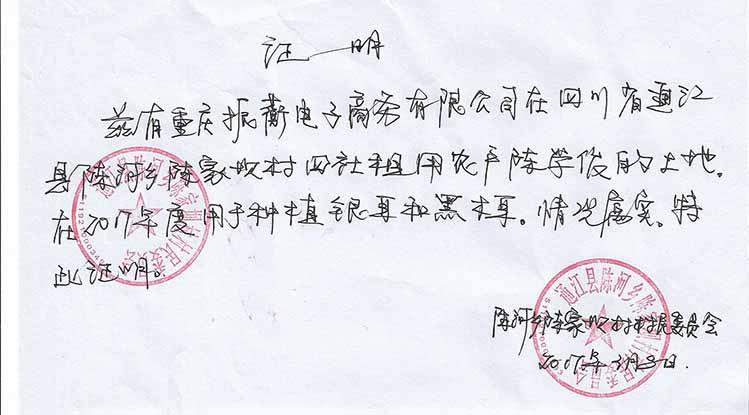 证明
兹有重庆振蘅电子商务有限公司在四川省通江
县陈河乡陈家坝村四社租用农户陈学俊的土地。
在2017年度用于种植银耳和黑木耳。情况属实。特
此证明。
陈河乡陈家坝村村民委员会
通江县陈河乡陈家坝村村民委员会